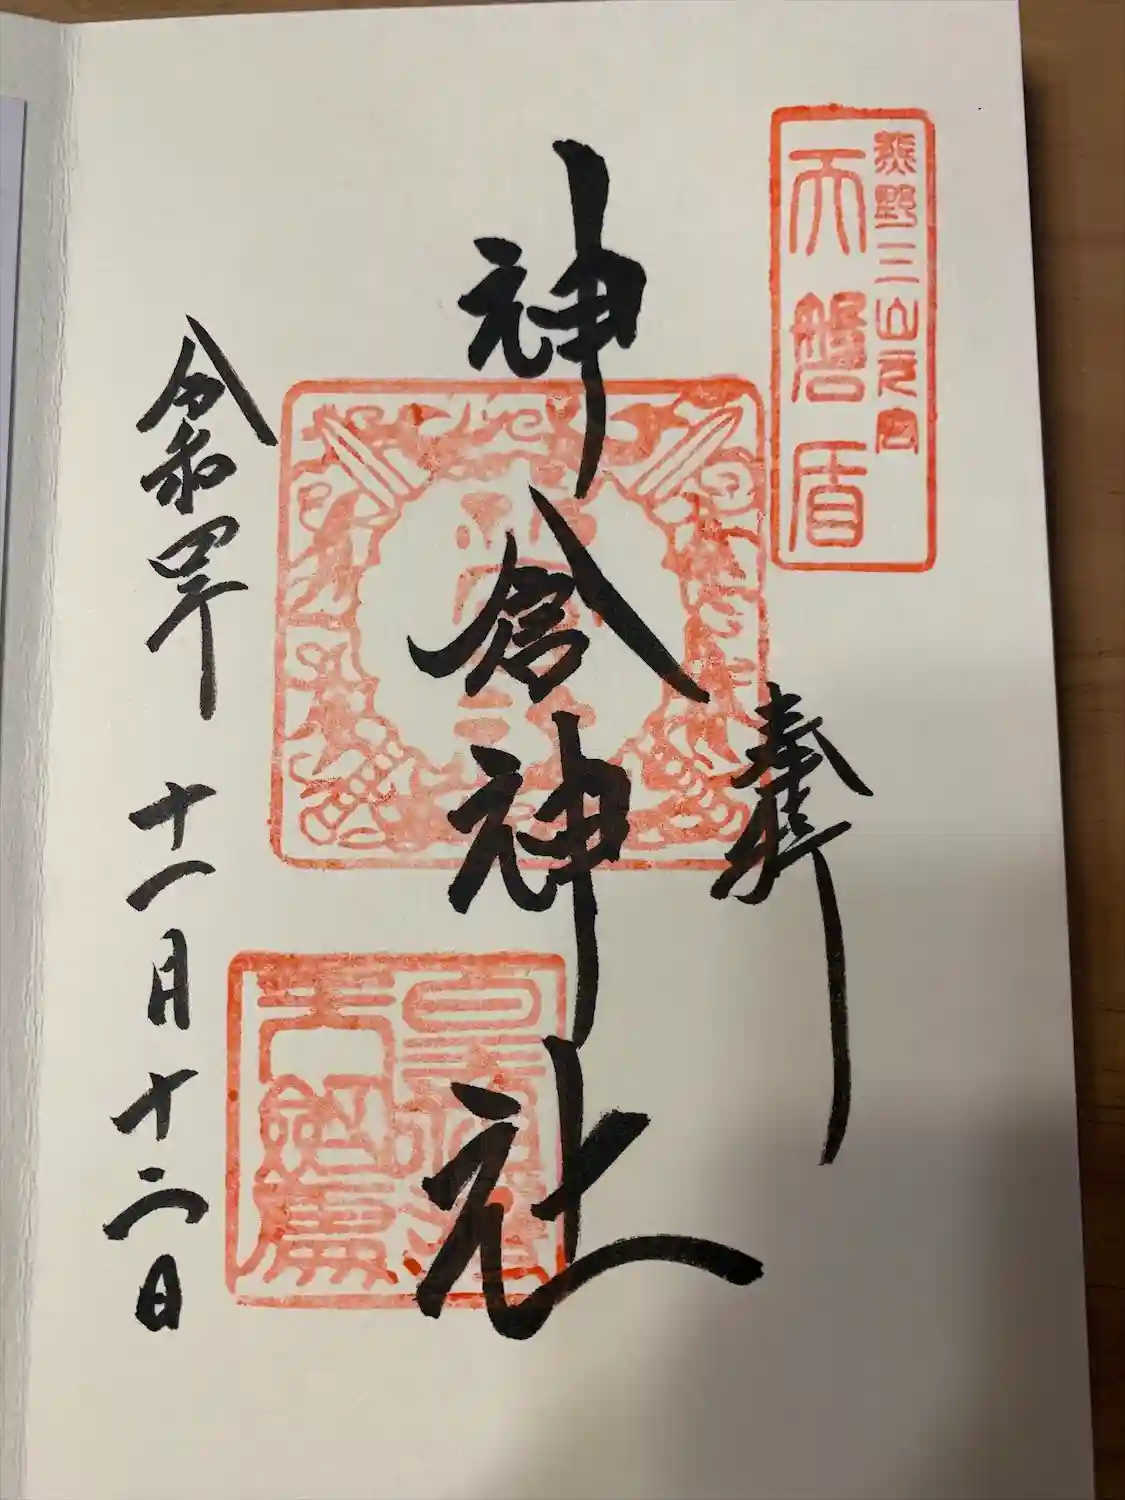 熊野三山元宮
天磐盾
奉拝
神倉神社
令和四年 十一月十二日